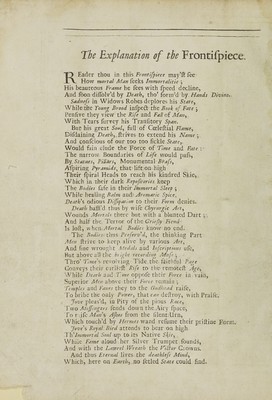 The Explanation of the Frontispiece.
REader thou in this Frontispiece may'st see
How mortal Man seeks Immortalitie;
His beauteous Frame he sees with speed decline,
And soon dissolv'd by Death, tho' form'd by Hands Divine.
Sadness in Widows Robes deplores his State,
While the Young Brood inspect the Book of Fate;
Pensive they view the Rise and Fall of Man,
With Tears survey his Transitory Span.
But his great Soul, full of Cœlestial Flame,
Disdaining Death, strives to extend his Name;
And conscious of our too too fickle State,
Would fain elude the Force of Time and Fate:
The narrow Boundaries of Life would pass,
By Statues, Pillars, Monumental Brass,
Aspiring Pyramids, that lift on high
Their spiral Heads to reach his kindred Skie,
Which in their dark Repositories keep
The Bodies safe in their Immortal Sleep;
While healing Balm and Aromatic Spice,
Death's odious Dissipation to their Form denies.
Death baffl'd thus by wise Chyrurgic Art,
Wounds Mortals there but with a blunted Dart;
And half the Terror of the Griesly Fiend
Is lost, when Mortal Bodies know no end.
The Bodies thus Preserv'd, the thinking Part
Men strive to keep alive by various Art,
And fine wrought Medals and Inscriptions use,
But above all the bright recording Muse;
Thro' Time's revolving Tide the faithful Page
Conveys their earliest Rise to the remotest Age,
While Death and Time oppose their Force in vain,
Superior Men above their Force remain;
Temples and Fanes they to the Godhead raise,
To bribe the only Power, that can destroy, with Praise.
Jove pleas'd, in Pity of the pious Race,
Two Messengers sends down the Airy Space,
To raise Man's Ashes from the silent Urn,
Which touch'd by Hermes wand resume their pristine Form.
Jove's Royal Bird attends to bear on high
Th'Immortal Soul up to its Native Skie,
While Fame aloud her Silver Trumpet sounds,
And with the Laurel Wreath the Victor Crowns.
And thus Eternal lives the deathless Mind,
Which, here on Earth, no settled State could find.